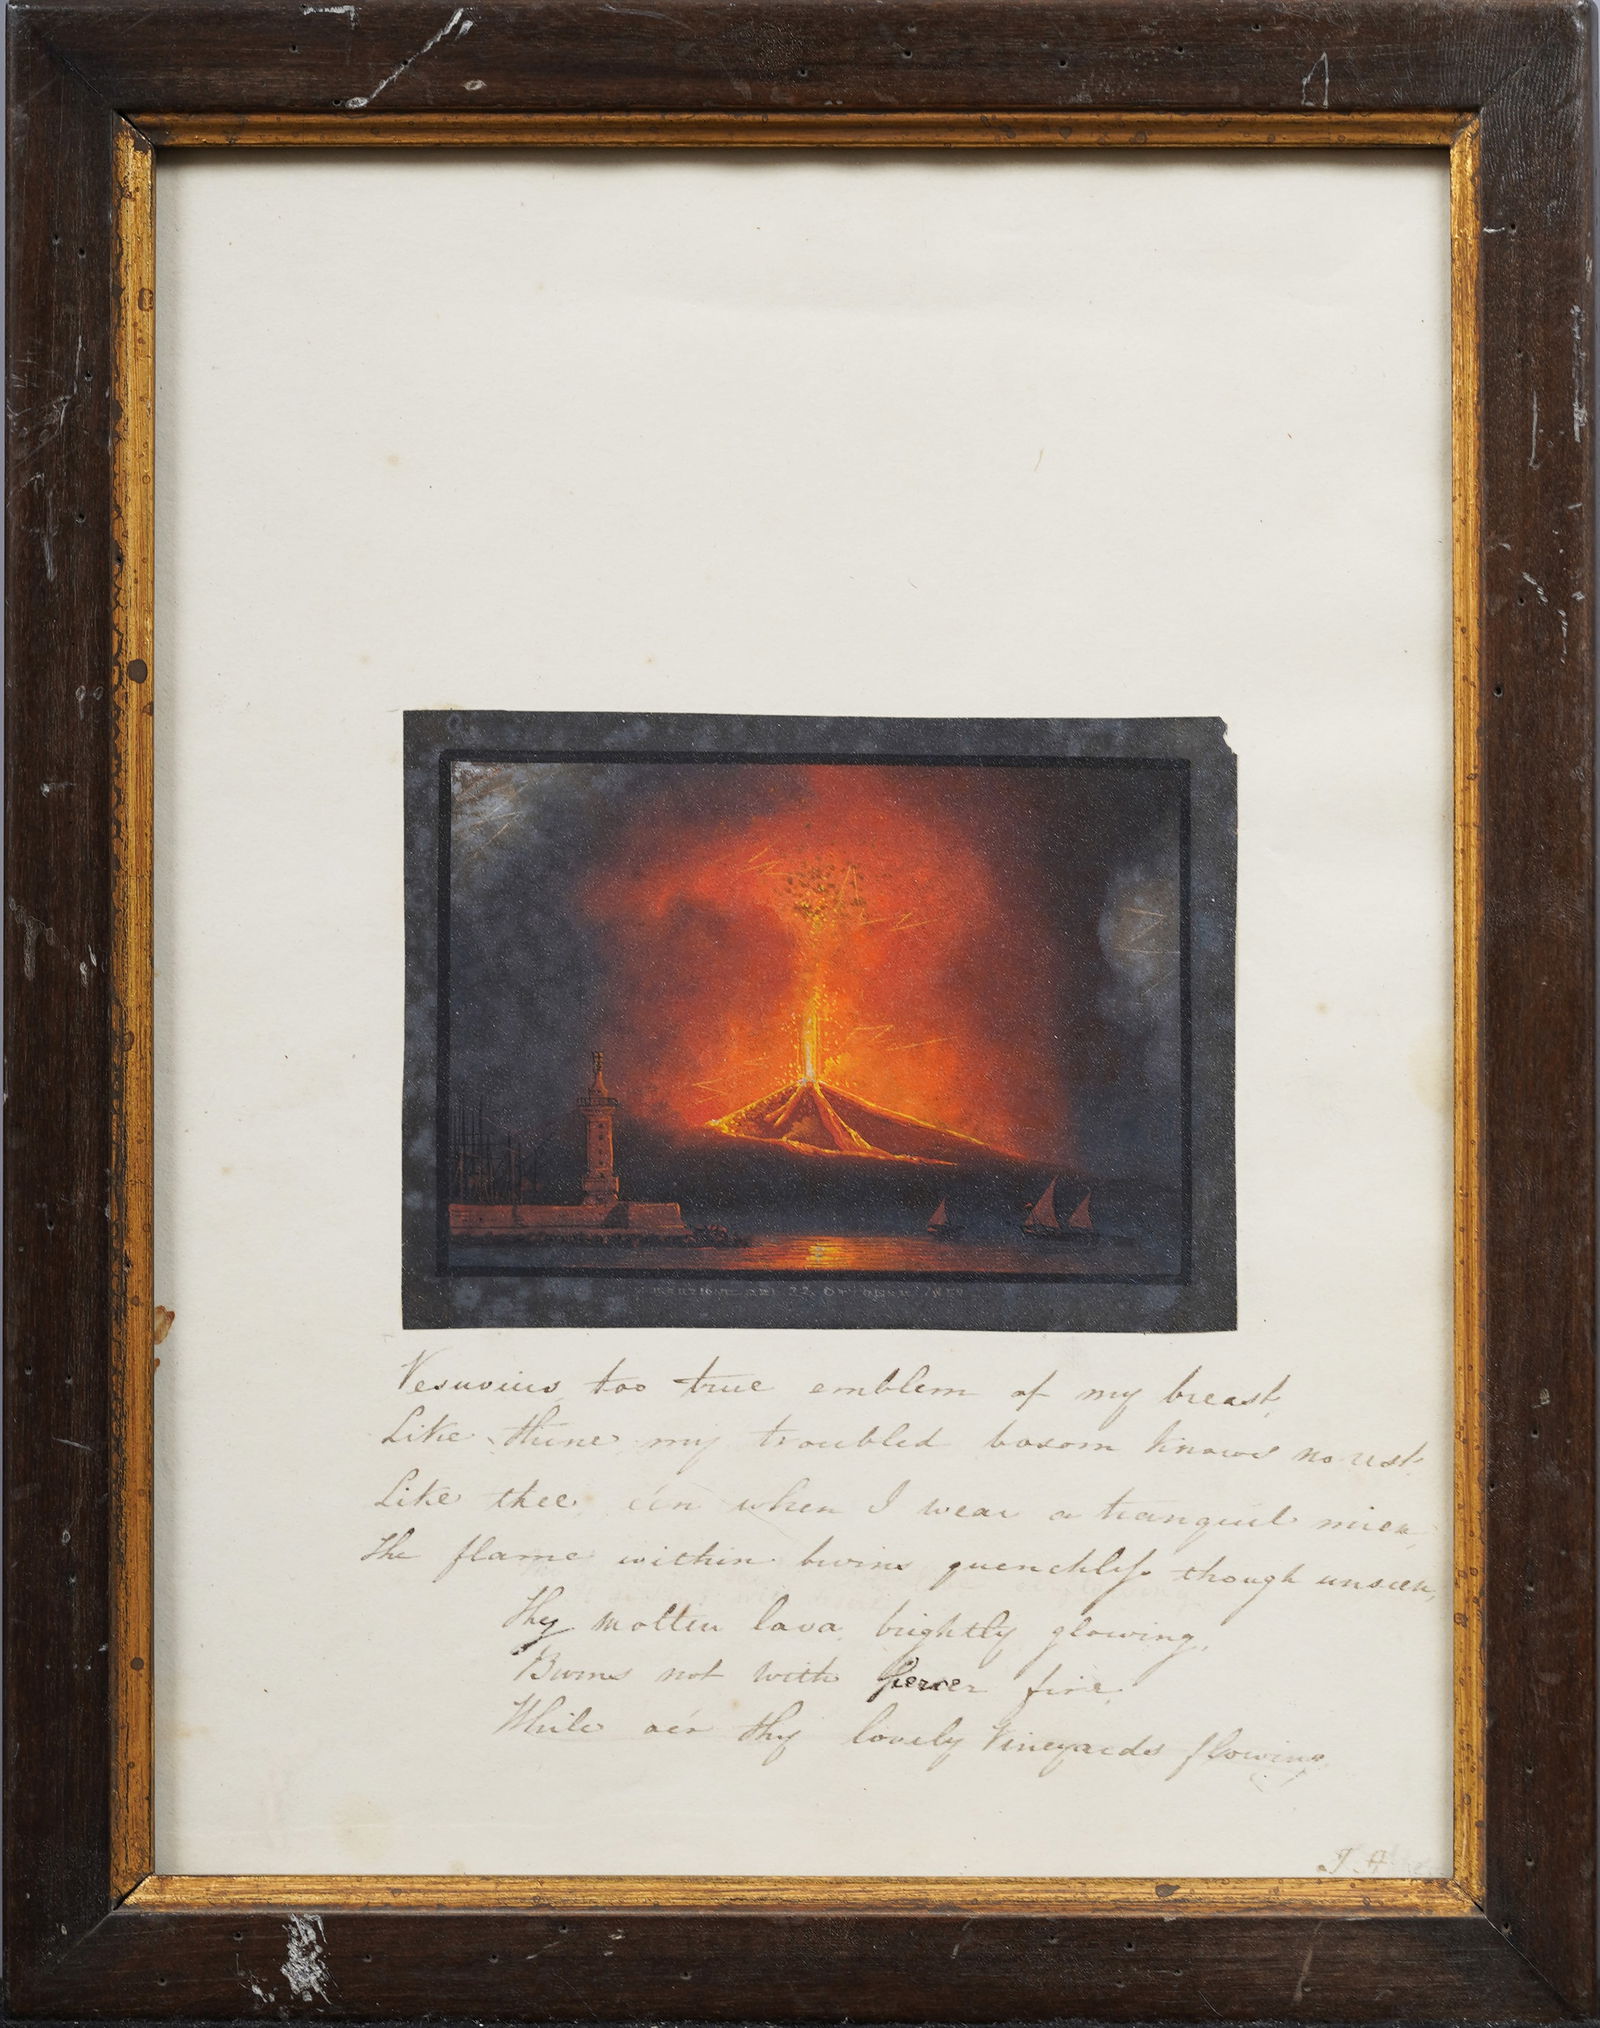 Eruzione del 22. Ottobre 1822
Vesuvius, too true emblem of my breast,
Like thine my troubled bosom knows no rest.
Like thee, e'en when I wear a tranquil mien,
The flame within burns quenchless though unseen,
Thy molten lava, brightly glowing,
Burns not with fiercer fire,
While o'er thy lovely Vineyards flowing,